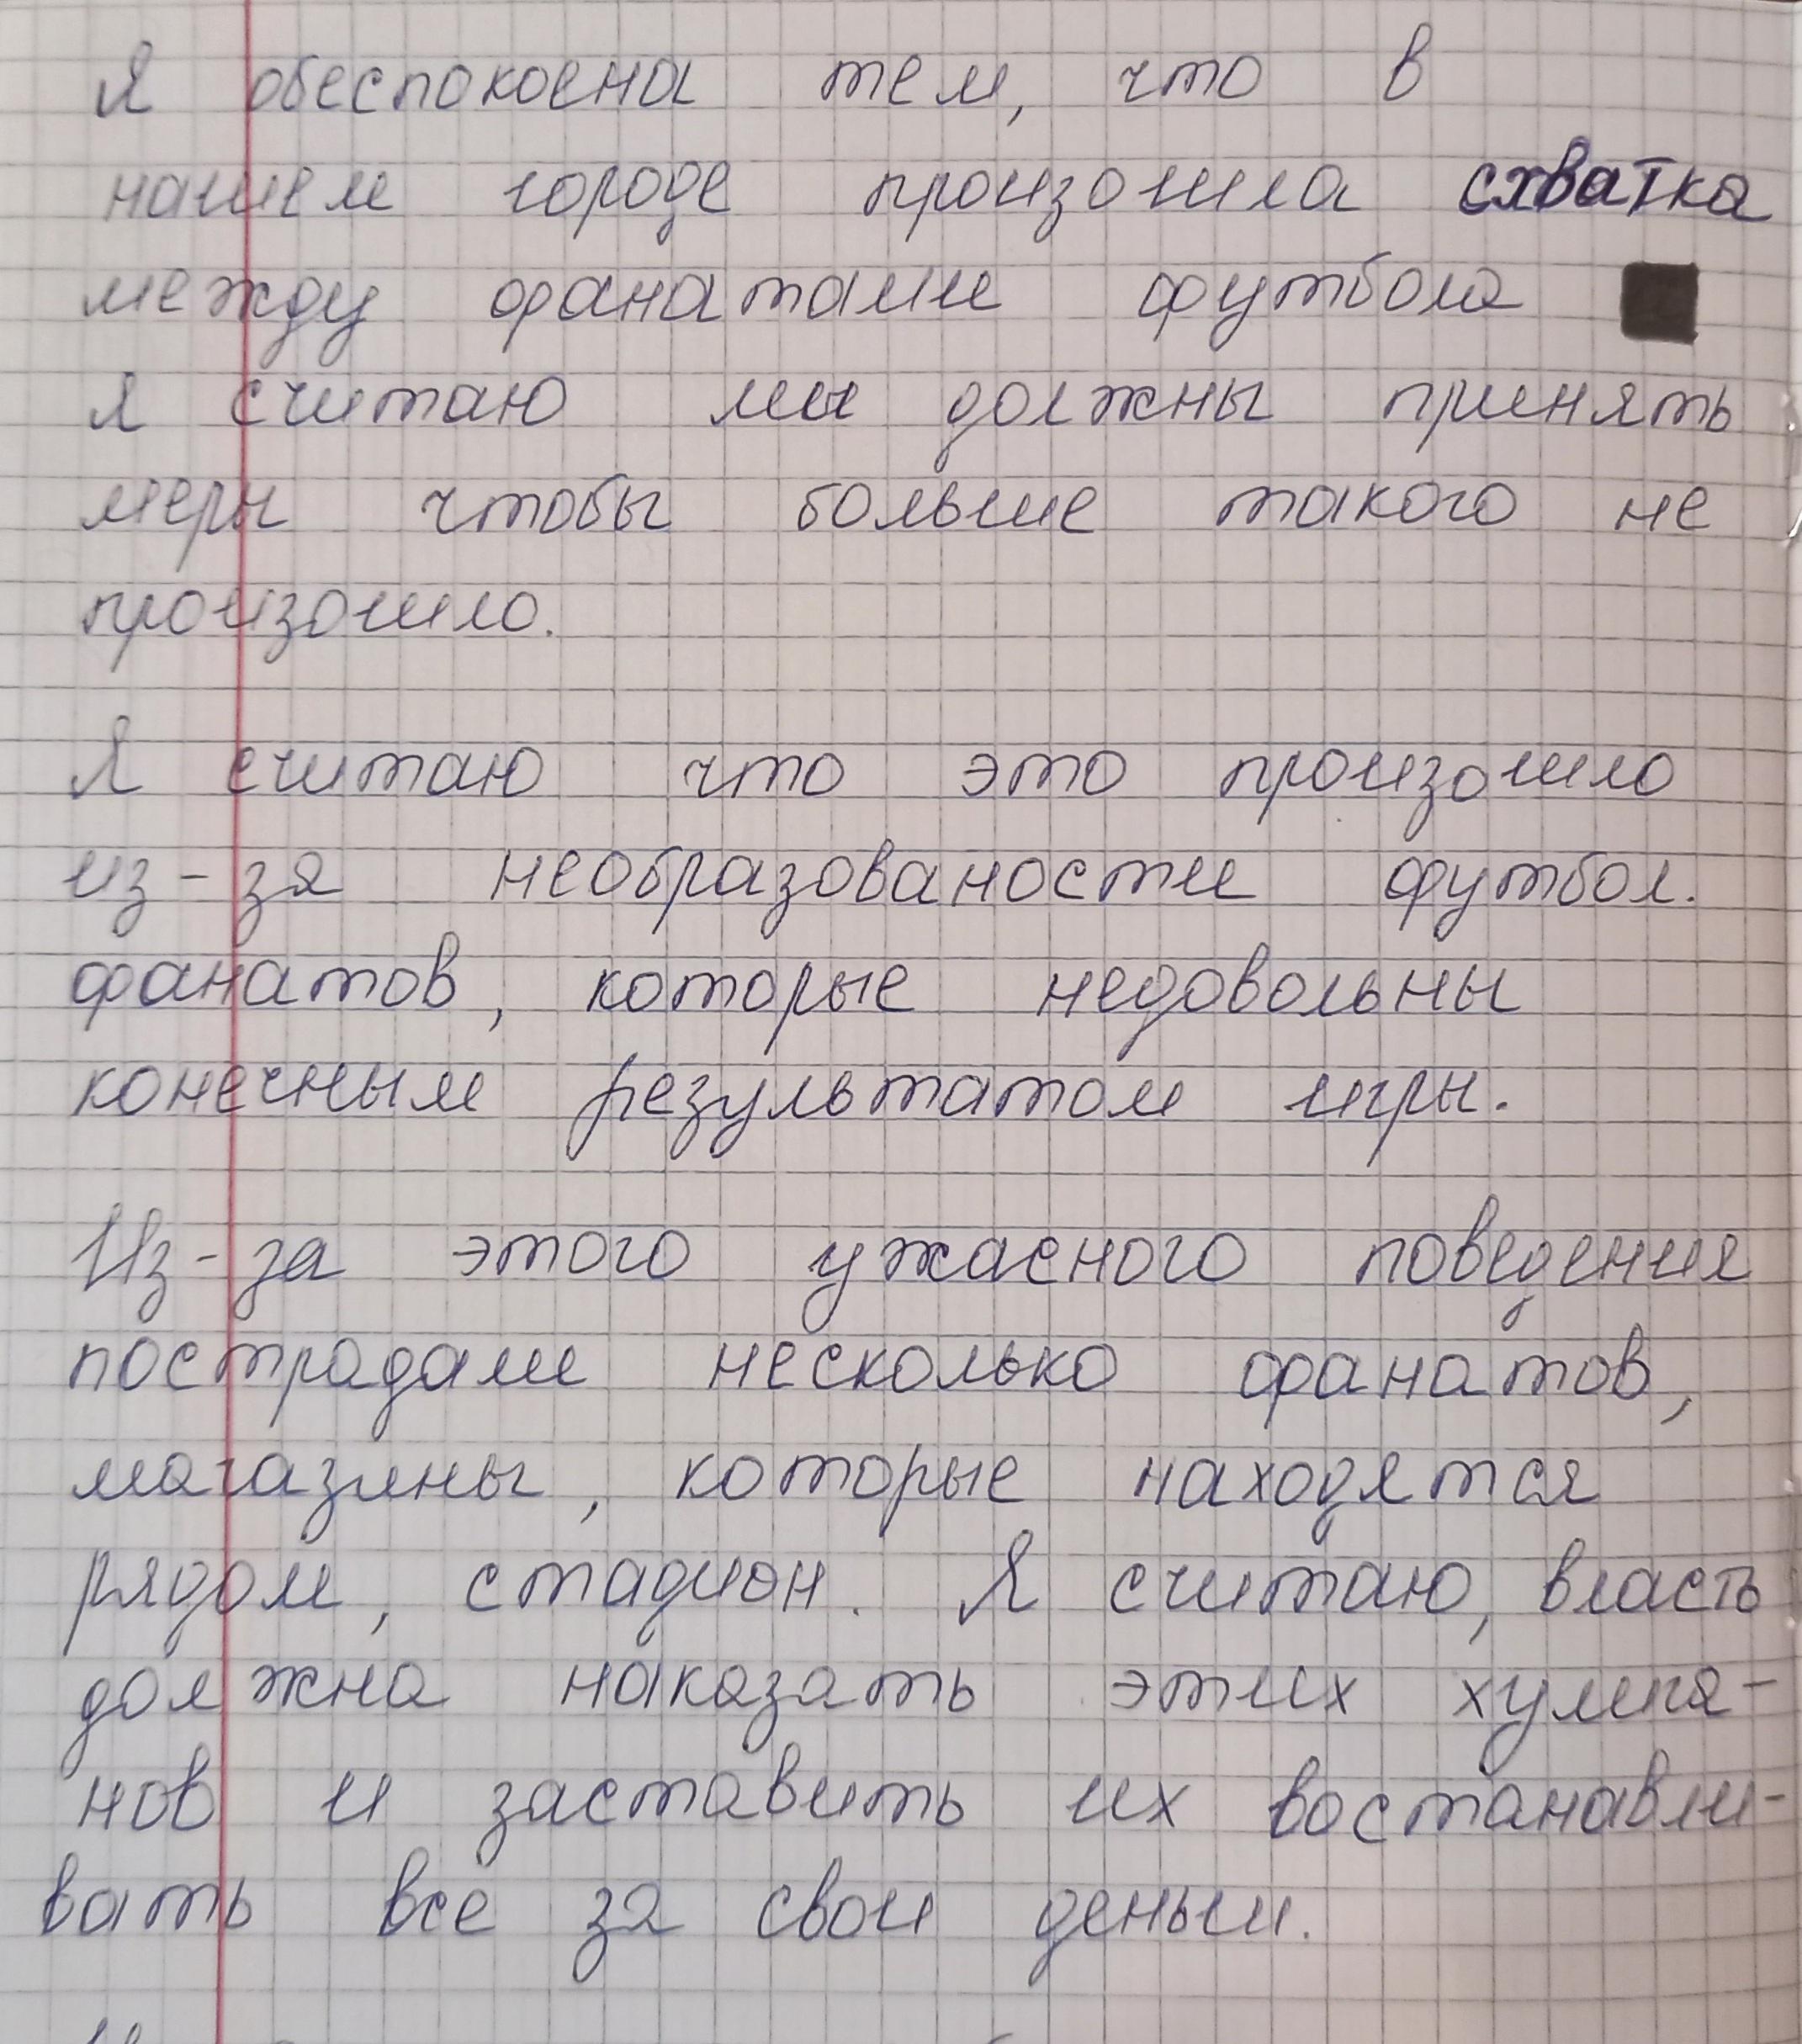 Я обеспокоена тем, что в
нашем городе произошла схватка
между фанатами футбола
я считаю мы должны принять
меры чтобы больше такого не
произошло.
Я считаю что это произошло
из-зя необразованости футбол.
фанатов, которые недовольны
конечным результатом игры.
Из-за этого ужасного поведения
пострадали несколько фанатов,
магазины, которые находятся
рядом, стадион. Я считаю, власть
должна наказать этих хулига-
нов и заставить их востанавли-
вать все за свои деньги.